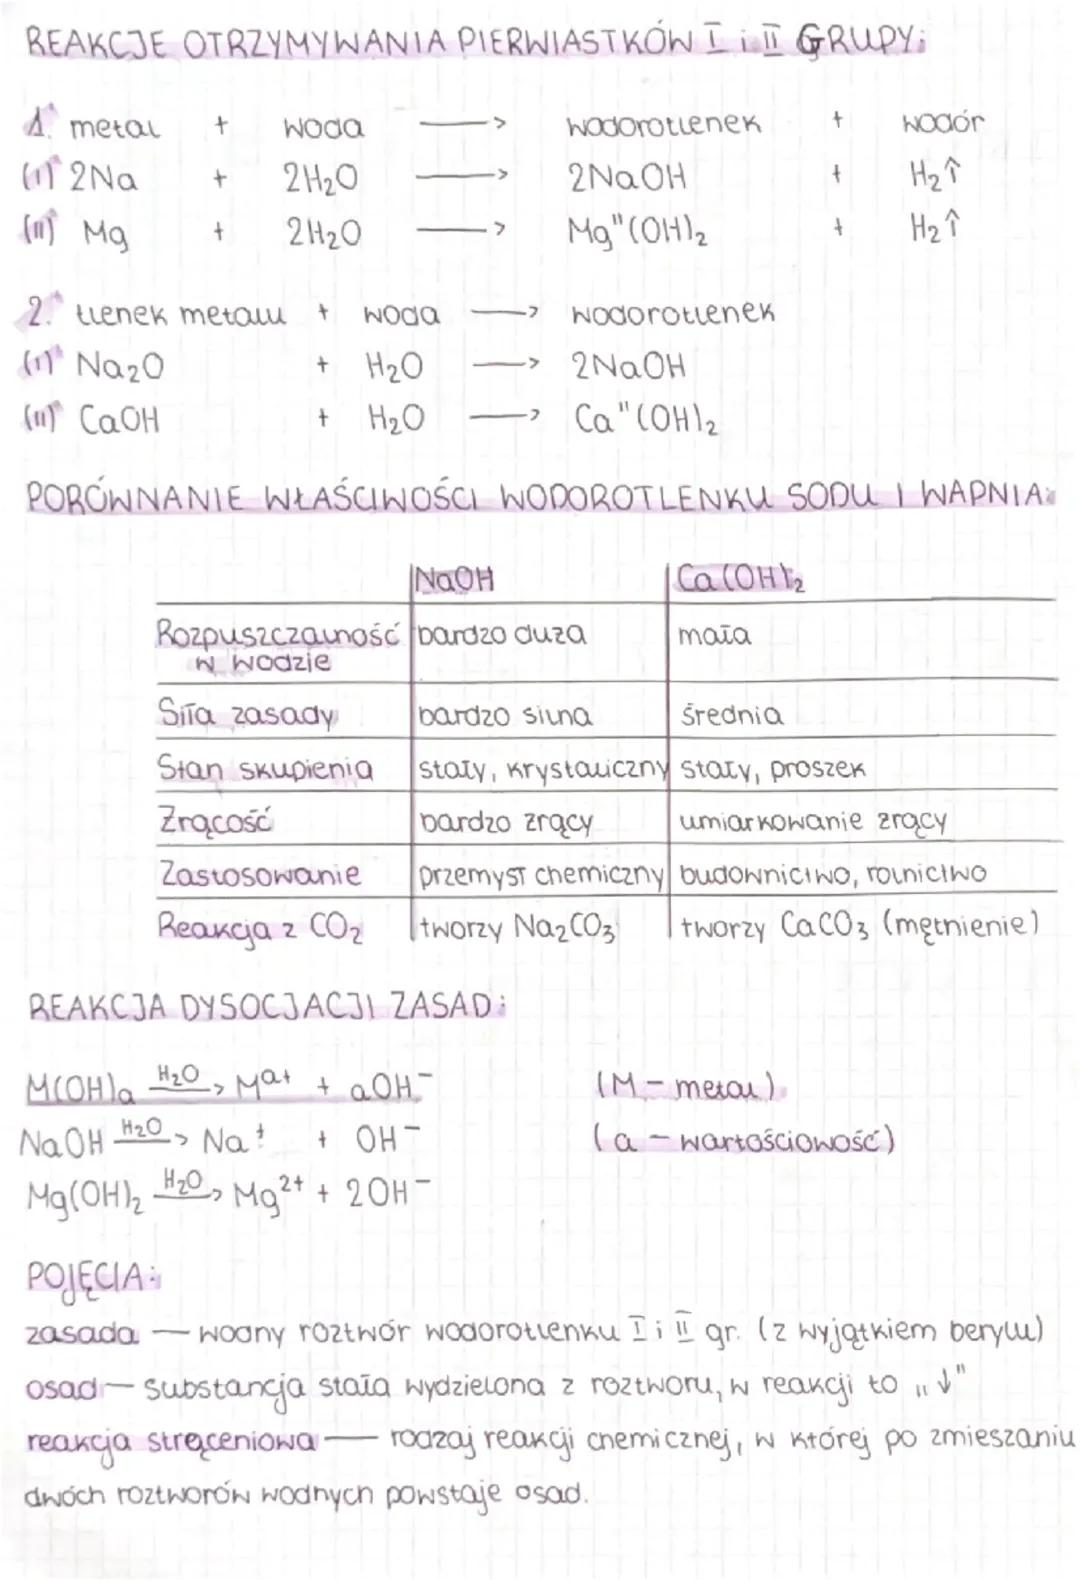 REAKCJE OTRZYMYWANIA PIERWIASTKÓW I i II GRUPY:
1. metal + woda → wodorotlenek + wodór
(I) 2Na + 2H₂O → 2NaOH + H₂↑
(II) Mg + 2H₂O → Mg"(OH)₂ + H₂↑
2. tlenek metalu + woda → wodorotlenek
(I) Na₂O + H₂O → 2NaOH
(II) CaOH + H₂O → Ca"(OH)₂
PORÓWNANIE WŁAŚCIWOŚCI WODOROTLENKU SODU I WAPNIA:
NaOH Ca(OH)₂
Rozpuszczalność w wodzie bardzo duża mała
Siła zasady bardzo silna średnia
Stan skupienia stały, krystaliczny stały, proszek
Żrącość bardzo żrący umiarkowanie żrący
Zastosowanie przemysł chemiczny budownictwo, rolnictwo
Reakcja z CO₂ tworzy Na₂CO₃ tworzy CaCO₃ (mętnienie)
REAKCJA DYSOCJACJI ZASAD:
M(OH)a H₂O→ Mᵃ⁺ + aOH⁻ (M - metal)
NaOH H₂O→ Na⁺ + OH⁻ (a - wartościowość)
Mg(OH)₂ H₂O→ Mg²⁺ + 2OH⁻
POJĘCIA:
zasada — wodny roztwór wodorotlenku I i II gr. (z wyjątkiem berylu)
osad — substancja stała wydzielona z roztworu, w reakcji to „↓"
reakcja strąceniowa — rodzaj reakcji chemicznej, w której po zmieszaniu
dwóch roztworów wodnych powstaje osad.